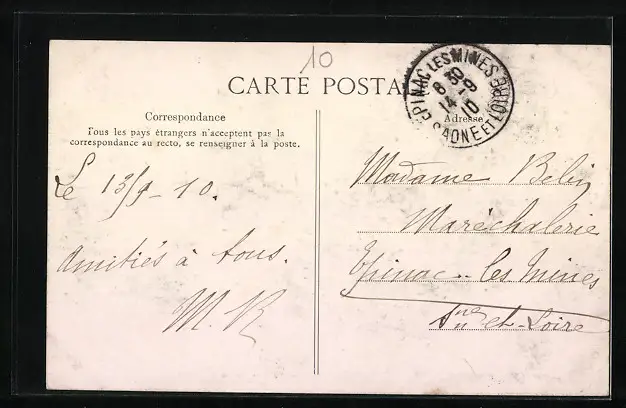 10
CARTE POSTA
EPINAC LES MINES
8 30
14 - 9
10
SAONE ET LOIRE
Correspondance
Tous les pays étrangers n'acceptent pas la
correspondance au recto, se renseigner à la poste.
Le 13/9 - 10.
Amitiés à tous.
M. R
Adresse
Madame Belin
Maréchalerie
Epinac - les Mines
Sne et - Loire